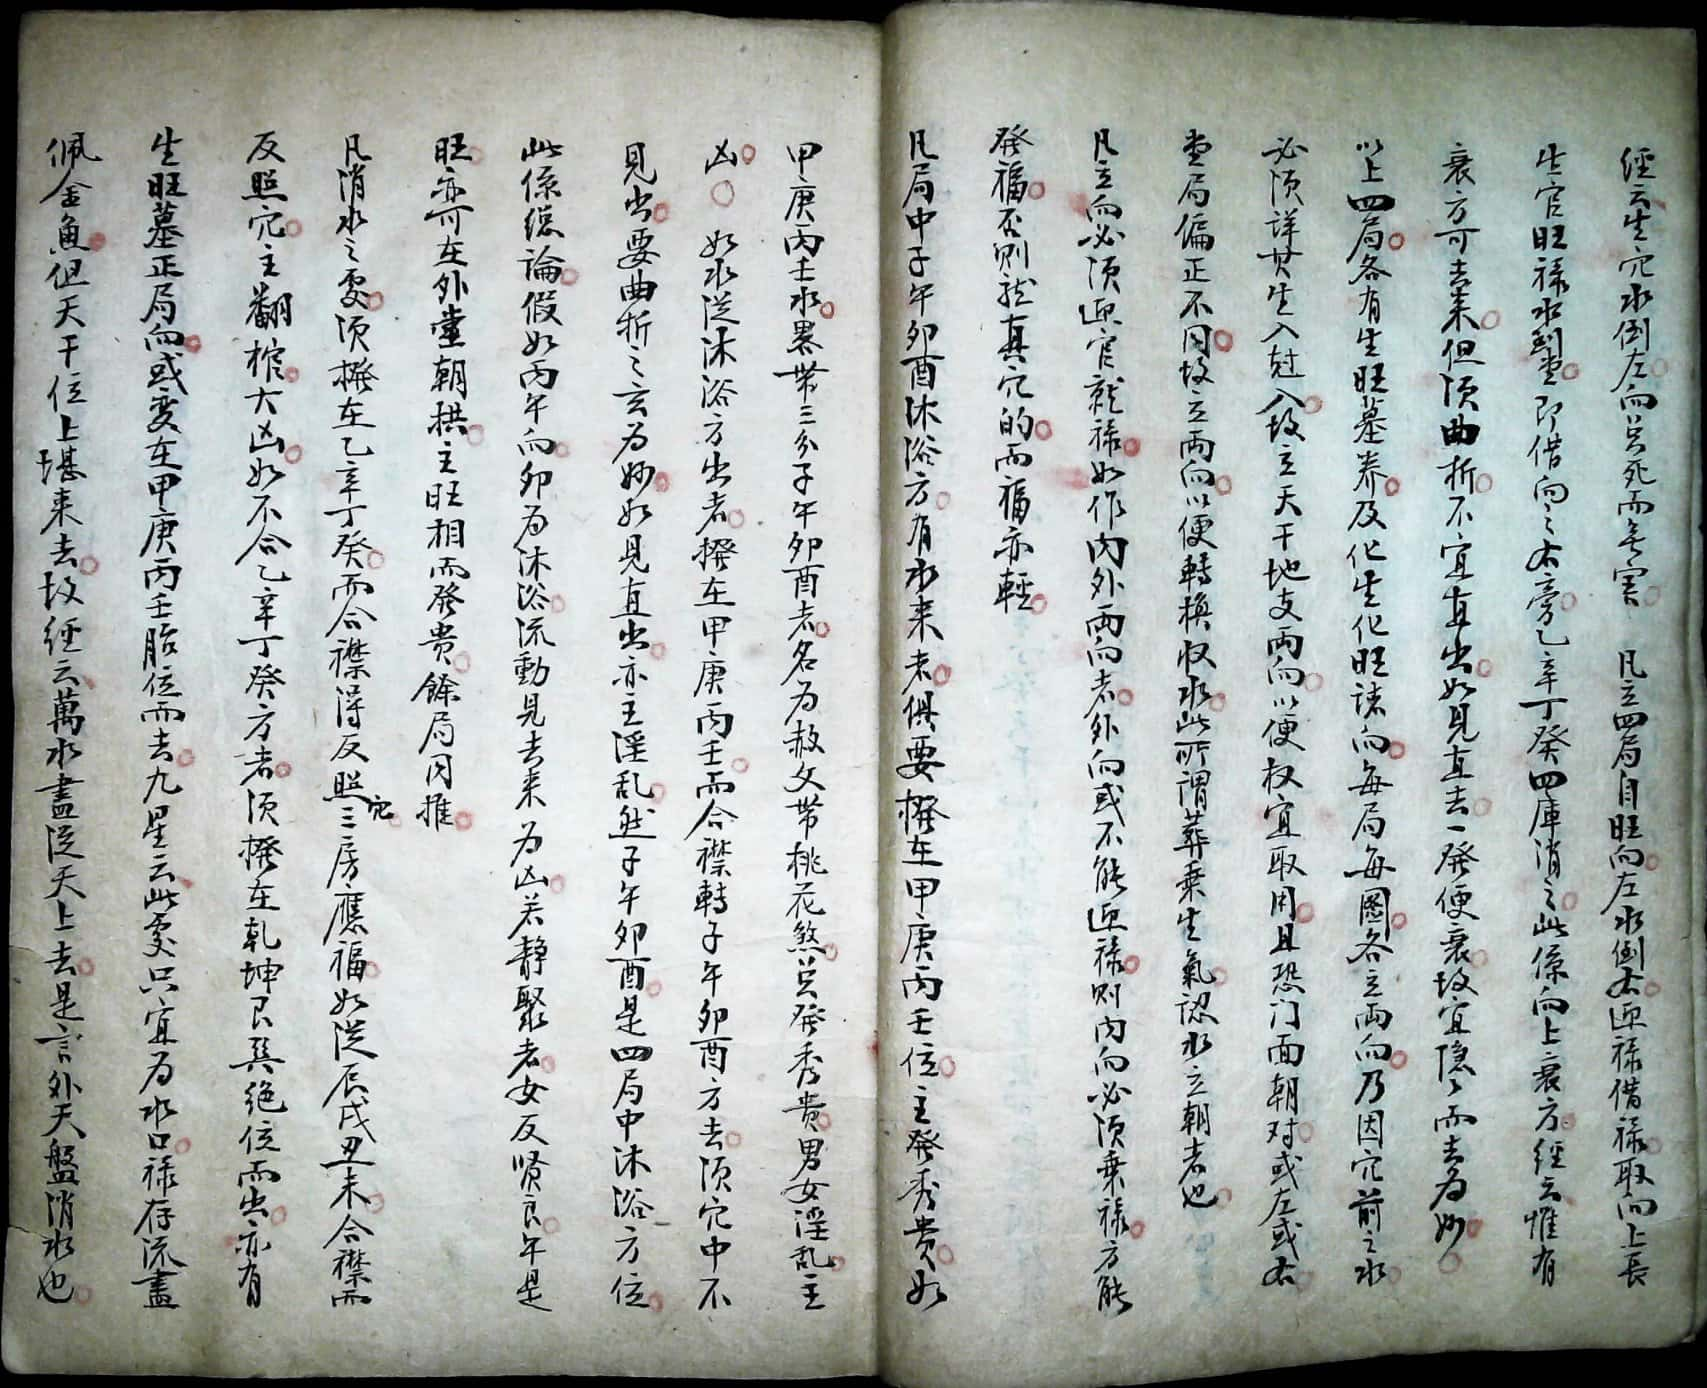 經云生穴水倒左向呂死而無害　凡立四局自旺向左水倒右迎祿借祿取向上長
生官旺祿水到堂即借向之右旁乙辛丁癸四庫消之此係向上衰方經云惟有
衰方可去来但須曲折不宜直出如見直去一發便衰故宜隱々而去為妙
以上四局各有生旺墓养及化生化旺諸向每局每圖各立両向乃因穴前之水
必須詳其生入尅入故立天干地支两向以便权宜取用且恐门面朝对或左或右
堂局偏正不同故立两向以便轉换收水此所謂葬乘生氣認水立朝者也
凡立向必須迎官就祿如作内外两向者外向或不能迎祿則内向必須乘祿方能
發福否則龍真穴的而福亦輕
凡局中子午卯酉沐浴方有水来者俱要撥在甲庚丙壬位主發秀贵如
甲庚丙壬水畧带三分子午卯酉者名为赦文带桃花煞呂發秀贵男女淫乱主
凶　如水従沐浴方出者撥在甲庚丙壬而合襟轉子午卯酉方去須穴中不
見出要曲折之玄为妙如見直出亦主淫乱然子午卯酉是四局中沐浴方位
此係總論假如丙午向卯为沐浴流動見去来为凶若静聚者女反贤良午是
旺亦可在外堂朝拱主旺相而發贵餘局同推
凡消水之處須撥在乙辛丁癸而合襟得反照穴三房應福如従辰戌丑未合襟而
反照穴主翻棺大凶如不合乙辛丁癸方者須撥在乹坤艮巽绝位而出亦有
生旺墓正局向或变在甲庚丙壬胎位而去九星云此處只宜为水口祿存流盡
佩金魚但天干位上堪来去故經云萬水盡従天上去是言外天盤消水也